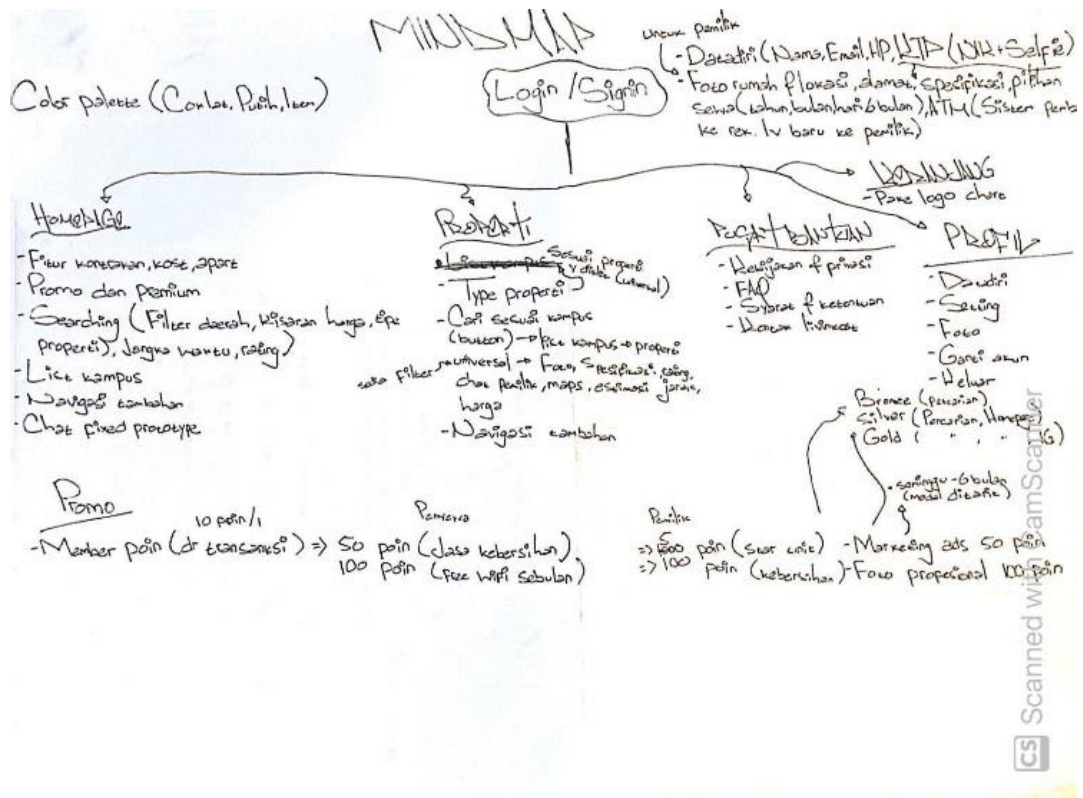 MINDMAP
Color palette (Coklat, Putih, Item)
Login / Signin
untuk pemilik
- Datadiri (Nama, Email, HP, KTP (NIK + Selfie)
- Foto rumah & lokasi, alamat, spesifikasi, pilihan
sewa (tahun, bulan, hari, 6 bulan), ATM (Sistem
ke rek. lv baru ke pemilik)
- Pake logo chart
HOMEPAGE
- Fitur kontrakan, kost, apart
- Promo dan Premium
- Searching (Filter daerah, kisaran harga, tipe
properti), Jangka waktu, rating)
- List kampus
- Navigasi tambahan
- Chat fixed prototype
PROPERTI
- List kampus
Sesuai properti
(universal)
- Type properti
- Cari sesuai kampus
(button) → list kampus → properti
universal → Foto, Spesifikasi, rating,
chat pemilik, maps, estimasi jarak,
harga
filter
- Navigasi tambahan
PUSAT BANTUAN
- Kebijakan & privasi
- FAQ
- Syarat & ketentuan
- Kontak livinkost
PROFIL
- Datadiri
- Setting
- Foto
- Ganti akun
- Keluar
Bronze (pencarian)
Silver (Pencarian, Homepage)
Gold ( " , " , IG)
• seminggu - 6 bulan
(modal ditarik)
Promo
10 poin/1
- Member poin (dr transaksi) =>
Penyewa
50 poin (jasa kebersihan)
100 poin (free wifi sebulan)
Pemilik
=> poin (star unit)
=> 100 poin (kebersihan)
- Marketing ads 50 poin
- Foto profesional 100 poin
CS Scanned with CamScanner